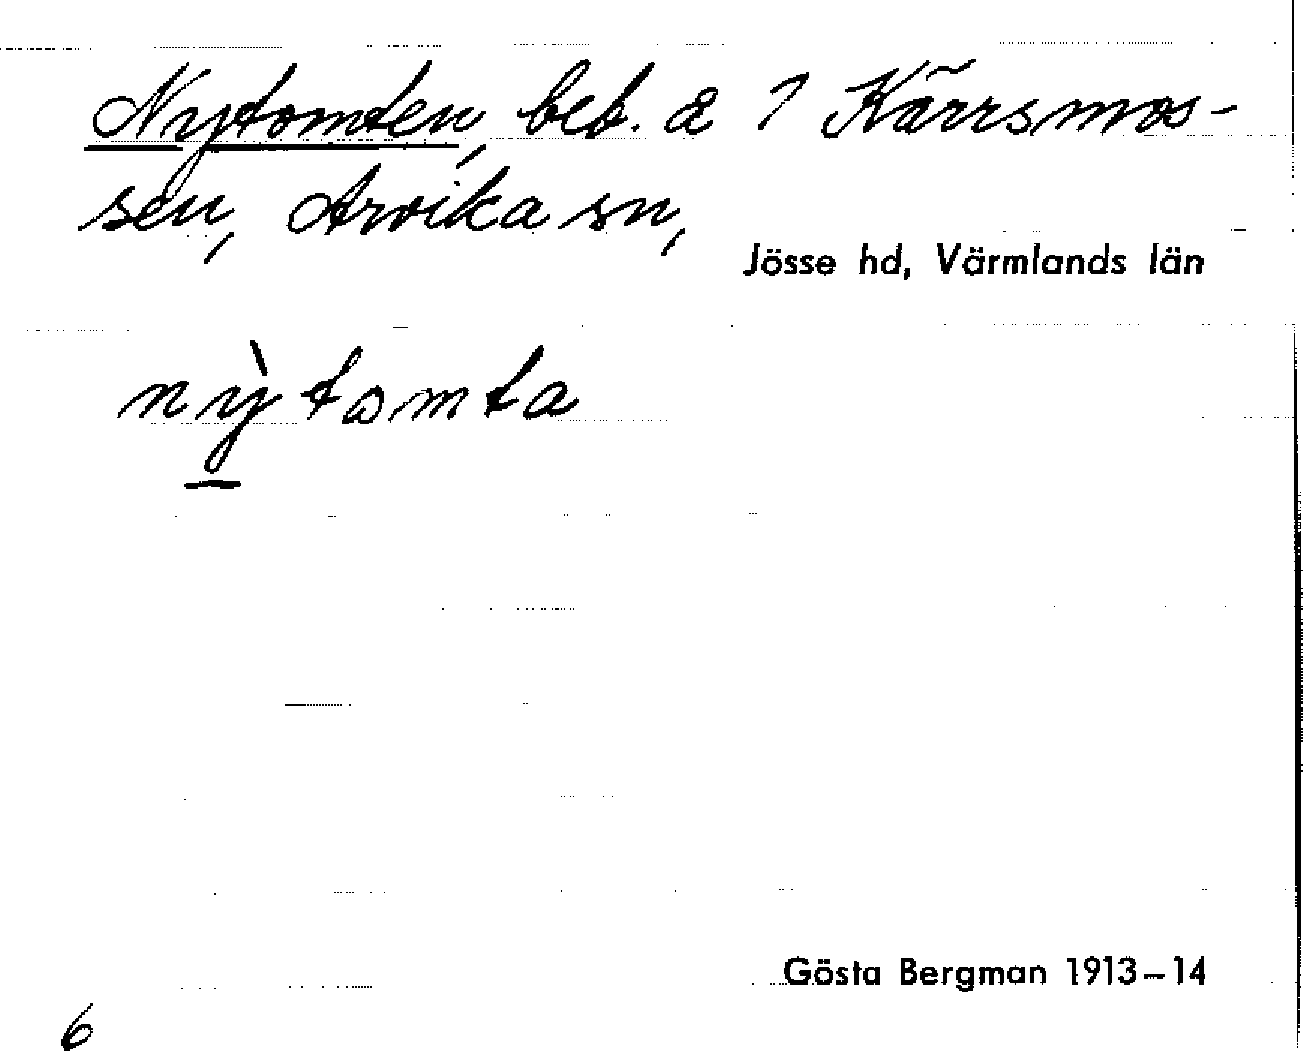 Nytomten, beb. å 1 Kärrsmos-
sen, Arvika sn,
Jösse hd, Värmlands län
nỳtomta
Gösta Bergman 1913–14
6